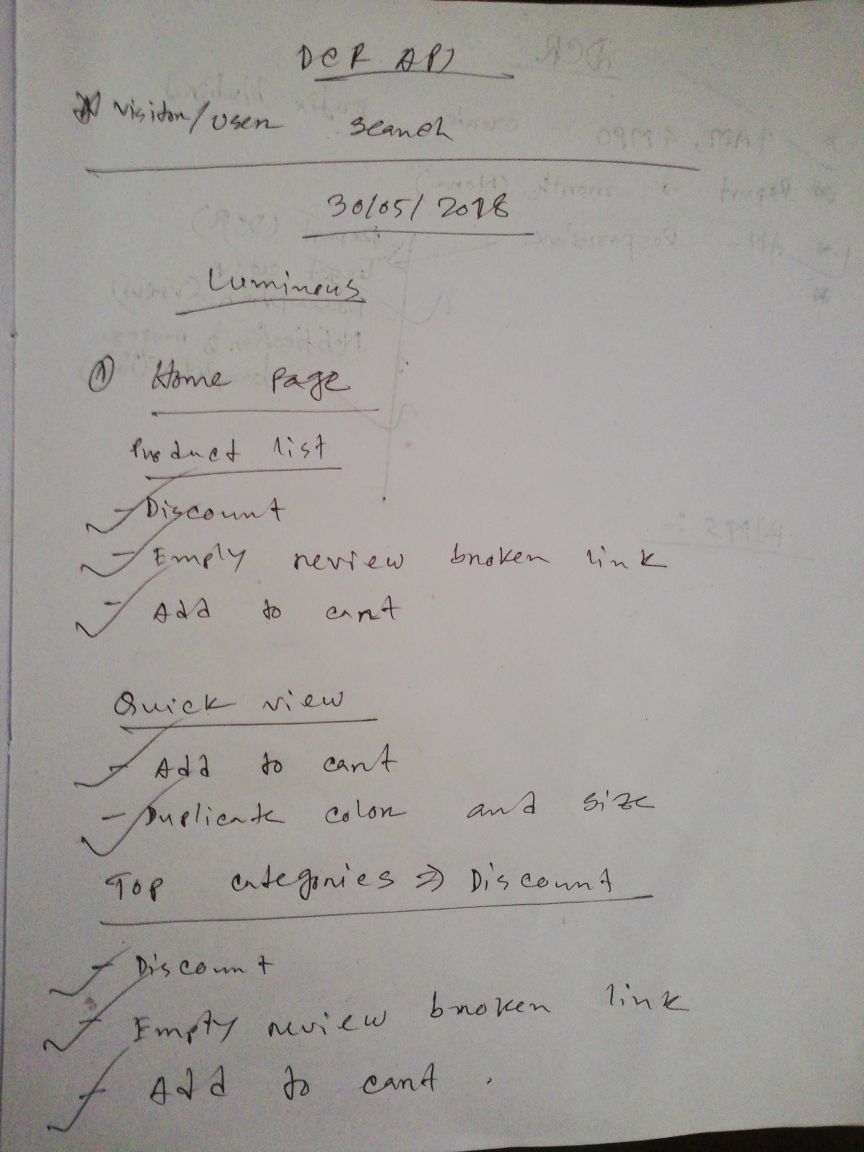 DCR API
* Visitor/User Search
30/05/2018
Luminous
① Home page
Product list
✓ - Discount
✓ - Empty review broken link
✓ - Add to cart
Quick view
✓ - Add to cart
✓ - Duplicate color and size
Top categories ⇒ Discount
✓ - Discount
✓ - Empty review broken link
✓ - Add to cart.